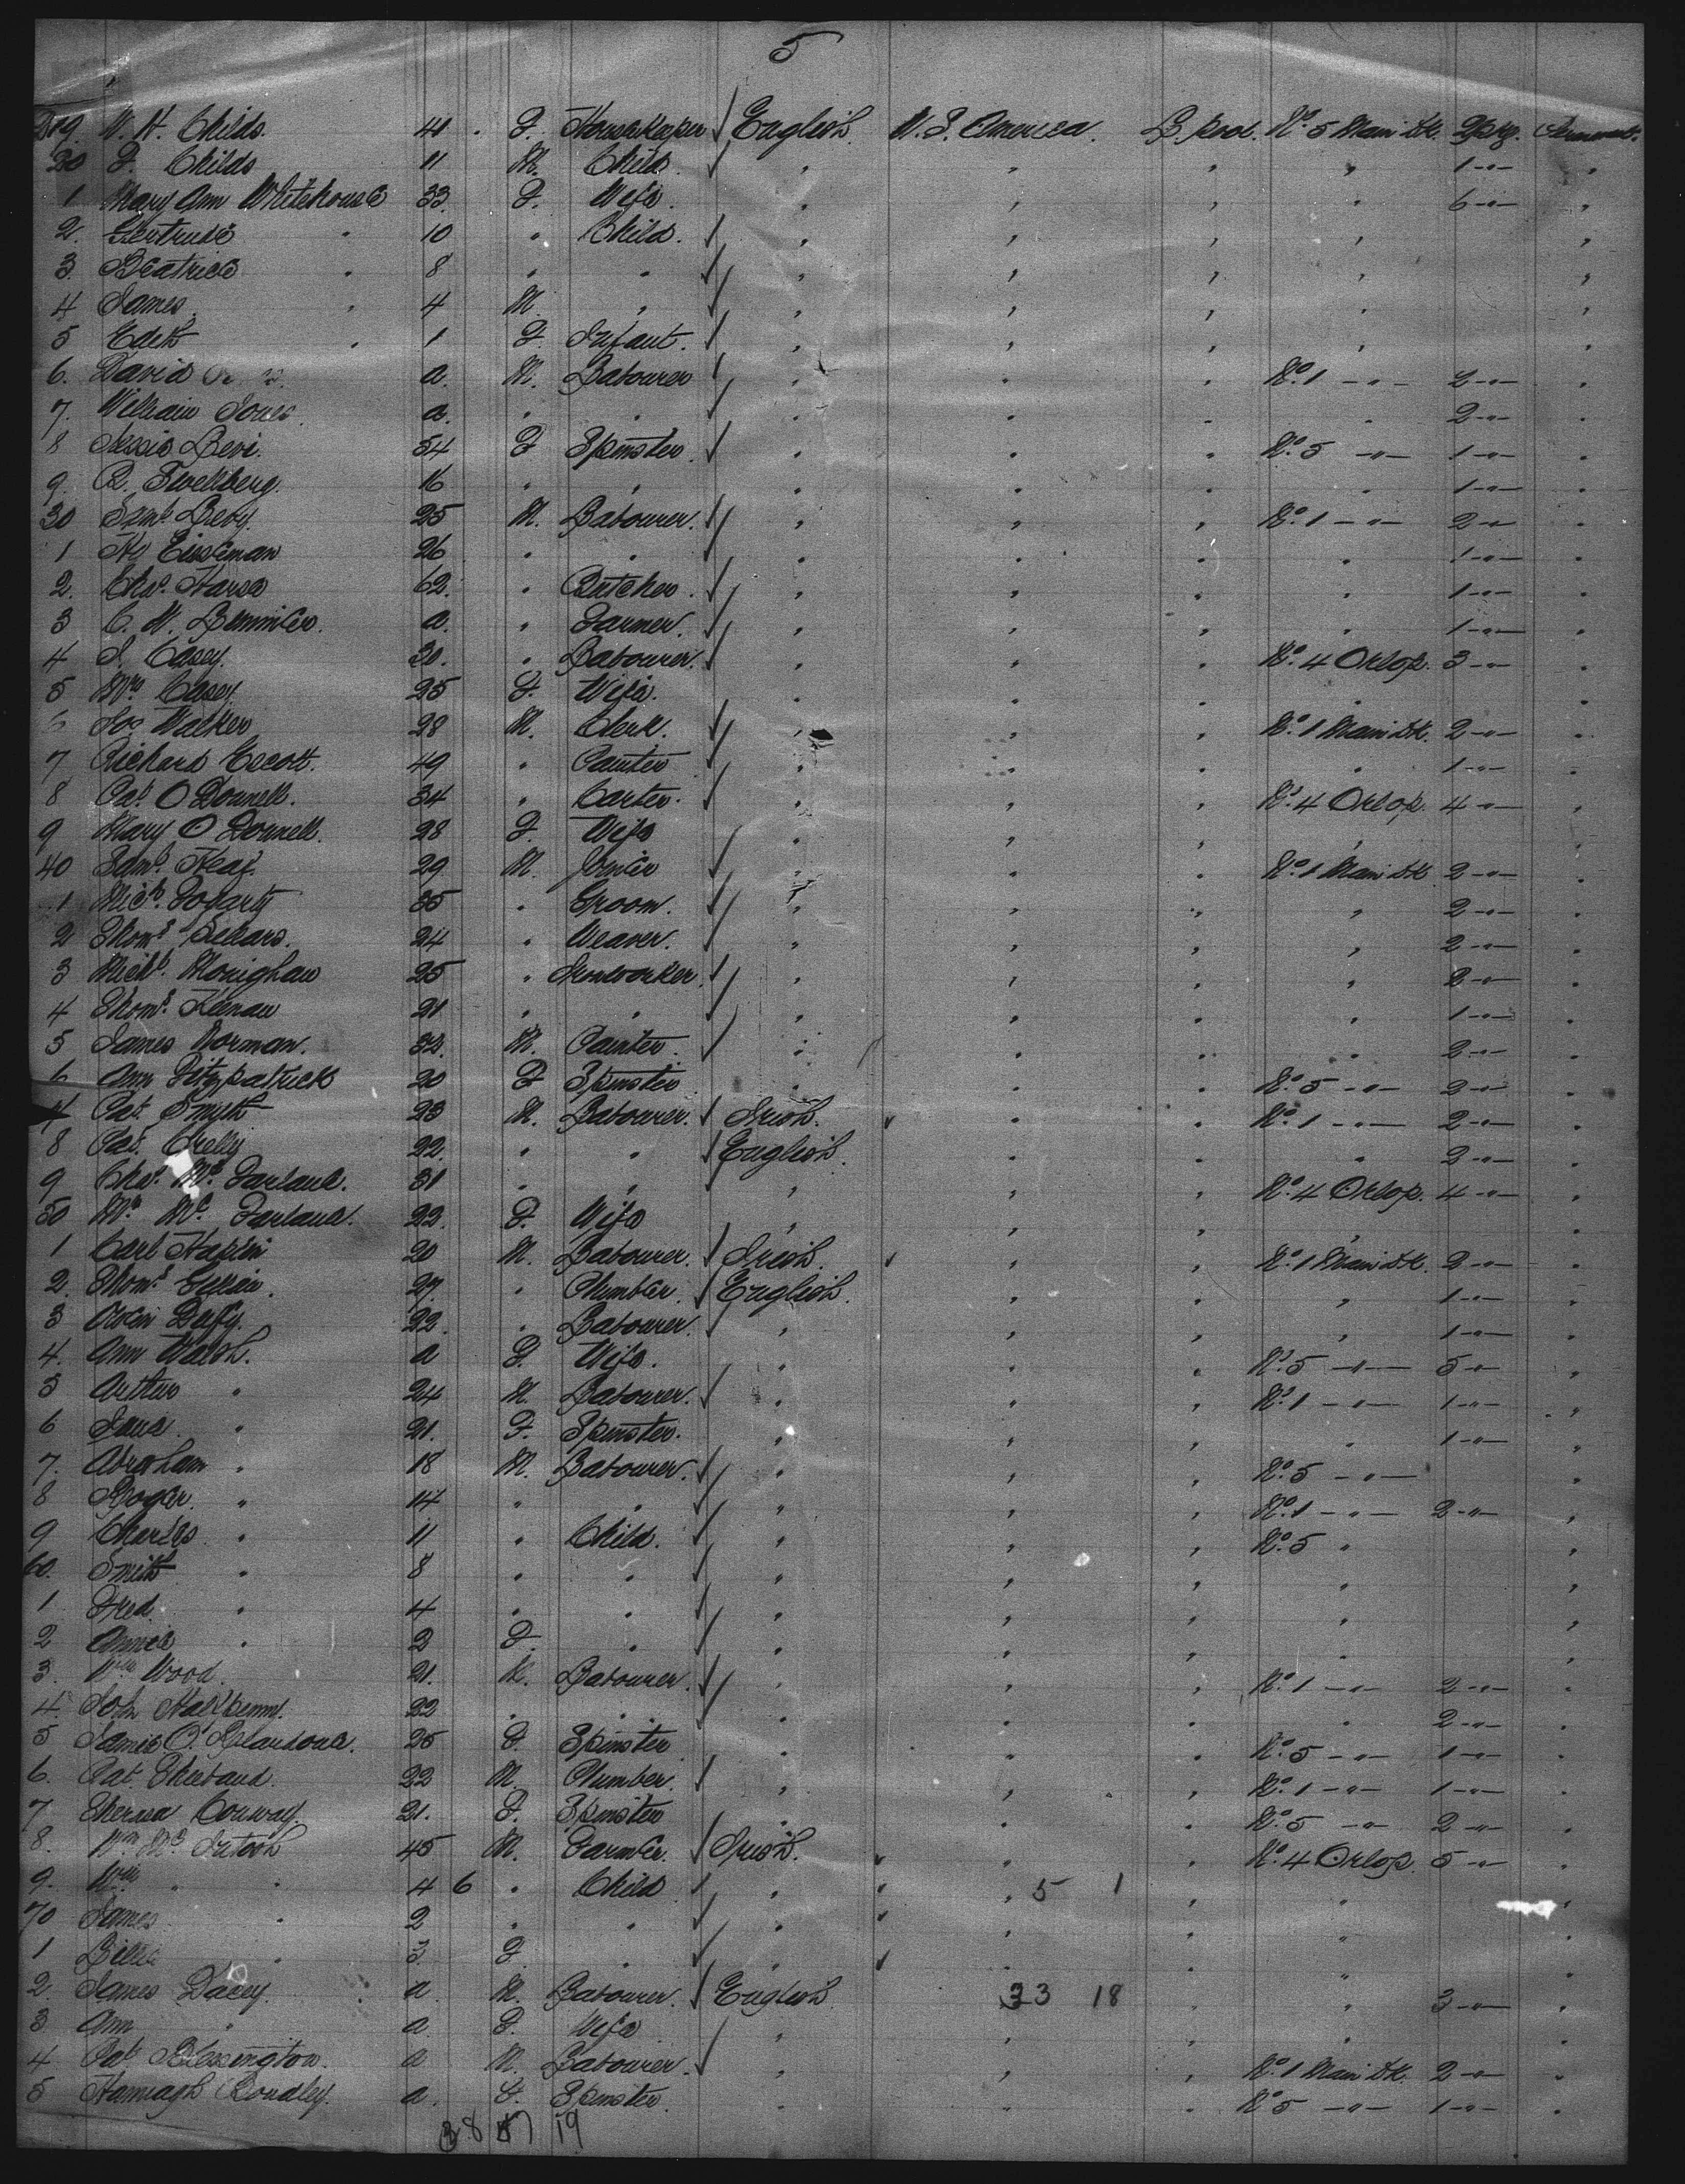 5
219 W. H. Childs. 41 . F. Housekeeper English. U.S. America. L'pool. No. 5 Main Dk. 2 pkg. Permanent.
20 F. Childs 11 M. Child. " " " " 1 -"- "
1 Mary Ann Whitehouse 33. F. Wife. " " " " 6 -"- "
2. Gertrude " 10 " Child. " " " " "
3. Beatrice " 8 " " " " " "
4 James. " 4 M. " " " " " "
5 Edith " 1 F. Infant. " " " " "
6. David a. M. Labourer " " " No. 1 -"- 2 -"- "
7. William Jones. a. " " " " " " 2 -"- "
8 Jessie Levi. 54 F Spinster " " " No. 5 -"- 1 -"- "
9. 16 " " " " " " 1 -"- "
30 Saml. Levy. 25 M. Labourer. " " " No. 1 -"- 2 -"- "
1 Eisseman 26 " " " " " " 1 -"- "
2. Chas. 62. " Butcher. " " " " 1 -"- "
3 C. W. a. " Farmer. " " " " 1 -"- "
4 J. Casey. 30. " Labourer. " " " No. 4 Orlop. 3 -"- "
5 Mrs. Casey 25 F. Wife. " " " " "
6 Jos Walker 28 M. Clerk. " " " No. 1 Main Dk. 2 -"- "
7 Richard Escott. 49 " Painter " " " " 1 -"- "
8 Pat. O'Donnell. 34 " Carter. " " " No. 4 Orlop. 4 -"- "
9 Mary O'Donnell. 28 F. Wife " " " " "
40 Saml. Heaf. 29 M. Joiner " " " No. 1 Main Dk. 2 -"- "
1 Micl. Fogarty 35 " Groom. " " " " 2 -"- "
2 Thoms. Sellars. 24 " Weaver. " " " " 2 -"- "
3 Michl. Monighan 25 " Ironworker. " " " " 2 -"- "
4 Thoms. Keenan 21 " " " " " " 1 -"- "
5 James Norman. 32. M. Painter. " " " " 2 -"- "
6 Ann Fitzpatrick 20 F Spinster " " " No. 5 -"- 2 -"- "
7 Pat. Smyth 23 M. Labourer. Irish. " " No. 1 -"- 2 -"- "
8 Pat. Crelly 22. " " English. " " " 2 -"- "
9 Chas. Mc. Farland. 31 " " " " " No. 4 Orlop. 4 -"- "
50 Mrs. Mc. Farland. 22. F. Wife " " " " "
1 Carl 20 M. Labourer. Irish. " " No. 1 Main Dk. 2 -"- "
2. Thoms. 27. " Plumber. English. " " " 1 -"- "
3 Owen Duffy. 22. " Labourer. " " " " 1 -"- "
4. Ann Walsh. a F. Wife. " " " No. 5 -"- 5 -"- "
5 Arthur " 24 M. Labourer. " " " No. 1 -"- 1 -"- "
6 " 21. F. Spinster. " " " " 1 -"- "
7. Abraham " 18 M. Labourer. " " " No. 5 -"- "
8 Roger. " 14 " " " " " No. 1 -"- 2 -"- "
9 Charles " 11 " Child. " " " No. 5 " "
60. Smith " 8 " " " " " " "
1 Fred. " 4 " " " " " " "
2 Annie " 2 F. " " " " " "
3. Wm. Wood. 21. M. Labourer. " " " No. 1 -"- 2 -"- "
4. John Halfpenny. 22 " " " " " " 2 -"- "
5 25 F. Spinster " " " No. 5 -"- 1 -"- "
6. Pat. 22 M. Plumber. " " " No. 1 -"- 1 -"- "
7 Theresa Conway. 21. F. Spinster " " " No. 5 -"- 2 -"- "
8. Wm. Mc. Intosh 45 M. Farmer. Irish. " " No. 4 Orlop. 5 -"- "
9. Wm. " " 4 6 " Child " " 5 1 " " "
70 James " 2 " " " " " " "
1 " 3 F. " " " " " "
2. James Dacey. a. M. Labourer. English. 33 18 " " 3 -"- "
3 Ann " a F. Wife " " " " "
4 Pat. Blessington. a M. Labourer. " " " No. 1 Main Dk. 2 -"- "
5 a. F. Spinster. " " " No. 5 -"- 1 -"- "
38 19